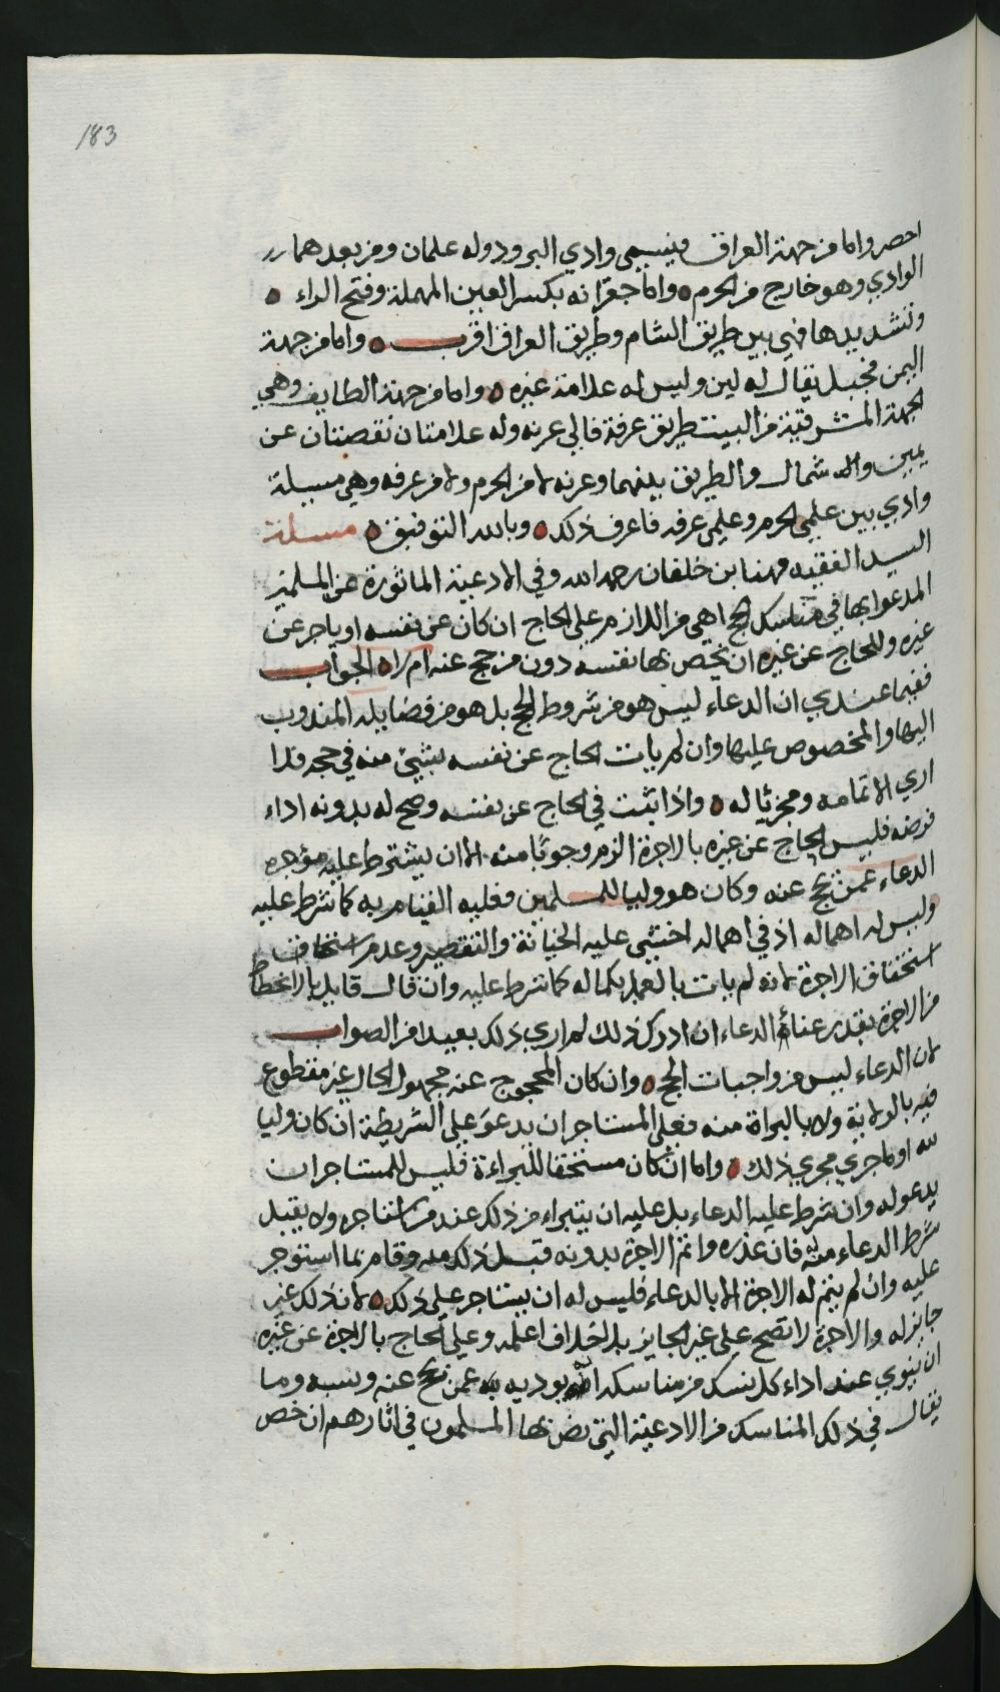 183
احصر واما من جهة العراق فيسمى وادي البرود وله علمان ومن بعدهما
الوادي وهو خارج من الحرم واما جعرانه بكسر العين المهملة وفتح الراء
وتشديدها فهي بين طريق الشام وطريق العراق اقرب واما من جهة
اليمن فجبل يقال له لين وليس له علامة غيره واما من جهة الطايف وهي
الجهة المشرقية من البيت طريق عرفة فالى عرنه وله علامتان نقصتان عن
يمين والا شمال والطريق بينهما وعرنه لا من الحرم ولا من عرفه وهي مسيلة
وادي بين علمي الحرم وعلمي عرفه فاعرف ذلك وبالله التوفيق مسئلة
السيد الفقيه مهنا بن خلفان رحمه الله وفي الادعية الماثورة عن المسلمين
المدعوا بها في مناسك الحج اهي من اللازم على الحاج ان كان عن نفسه او باجر عن
غيره وللحاج عن غيره ان يختص بها نفسه دون من حج عنه ام لا الجواب
ففيما عندي ان الدعاء ليس هو من شروط الحج بل هو من فضايله المندوب
اليها والمخصوص عليها وان لم يات الحاج عن نفسه بشيئ منه في حجه فلا
ارى الا تمامه ومجزيا له واذا ثبت في الحاج عن نفسه وصح له بدونه اداء
فرضه فليس الحاج عن غيره بالاجرة الزم وجوبا منه الا ان يشترط عليه مؤجره
الدعاء عمن يحج عنه وكان هو وليا للمسلمين فعليه القيام به كما شرط عليه
وليس له اهماله اذ في اهماله اخشى عليه الخيانة والتقصير وعدم استحقاق
استحقاق الاجرة لانه لم يات بالعمل بكماله كما شرط عليه وان قال قايل بالانحطاط
من الاجرة بقدر عناء الدعاء ان ادرك ذلك لم ارى ذلك بعيدا من الصواب
لان الدعاء ليس من واجبات الحج وان كان المحجوج عنه مجهول الحال غير مقطوع
فيه بالولاية ولا بالبراة منه فعلى المستاجر ان يدعو على الشريطة ان كان وليا
لله او ما جرى مجرى ذلك واما ان كان مستحقا للبراءة فليس للمستاجر ان
يدعو له وان شرط عليه الدعاء بل عليه ان يتبراء من ذلك عند من استاجره ولا يقبل
شرط الدعاء منه له فان عذره واتم الاجرة بدونه قبل ذلك منه وقام بما استوجر
عليه وان لم يتم له الاجرة الا بالدعاء فليس له ان يستاجر على ذلك لان ذلك غير
جايز له والاجرة لا تصح على غير الجايز بلا خلاف اعلمه وعلى الحاج بالاجرة عن غيره
ان ينوي عند اداء كل نسك من مناسكه انه يوديه عمن يحج عنه ونسبه وما
يقال في ذلك المناسك من الادعية التي نص بها المسلمون في اثارهم ان خص